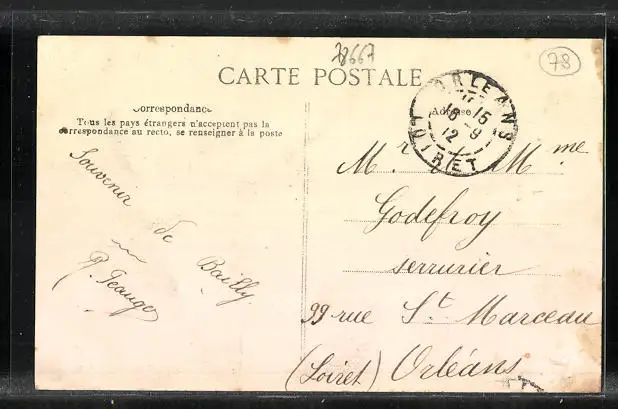 78667
78
CARTE POSTALE
Correspondance
Tous les pays étrangers n'acceptent pas la
correspondance au recto, se renseigner à la poste
Adresse
ORLEANS
LOIRET
Souvenir
de
Bailly
Mr Mme
Godefroy
serrurier
99 rue St Marceau
(Loiret) Orléans